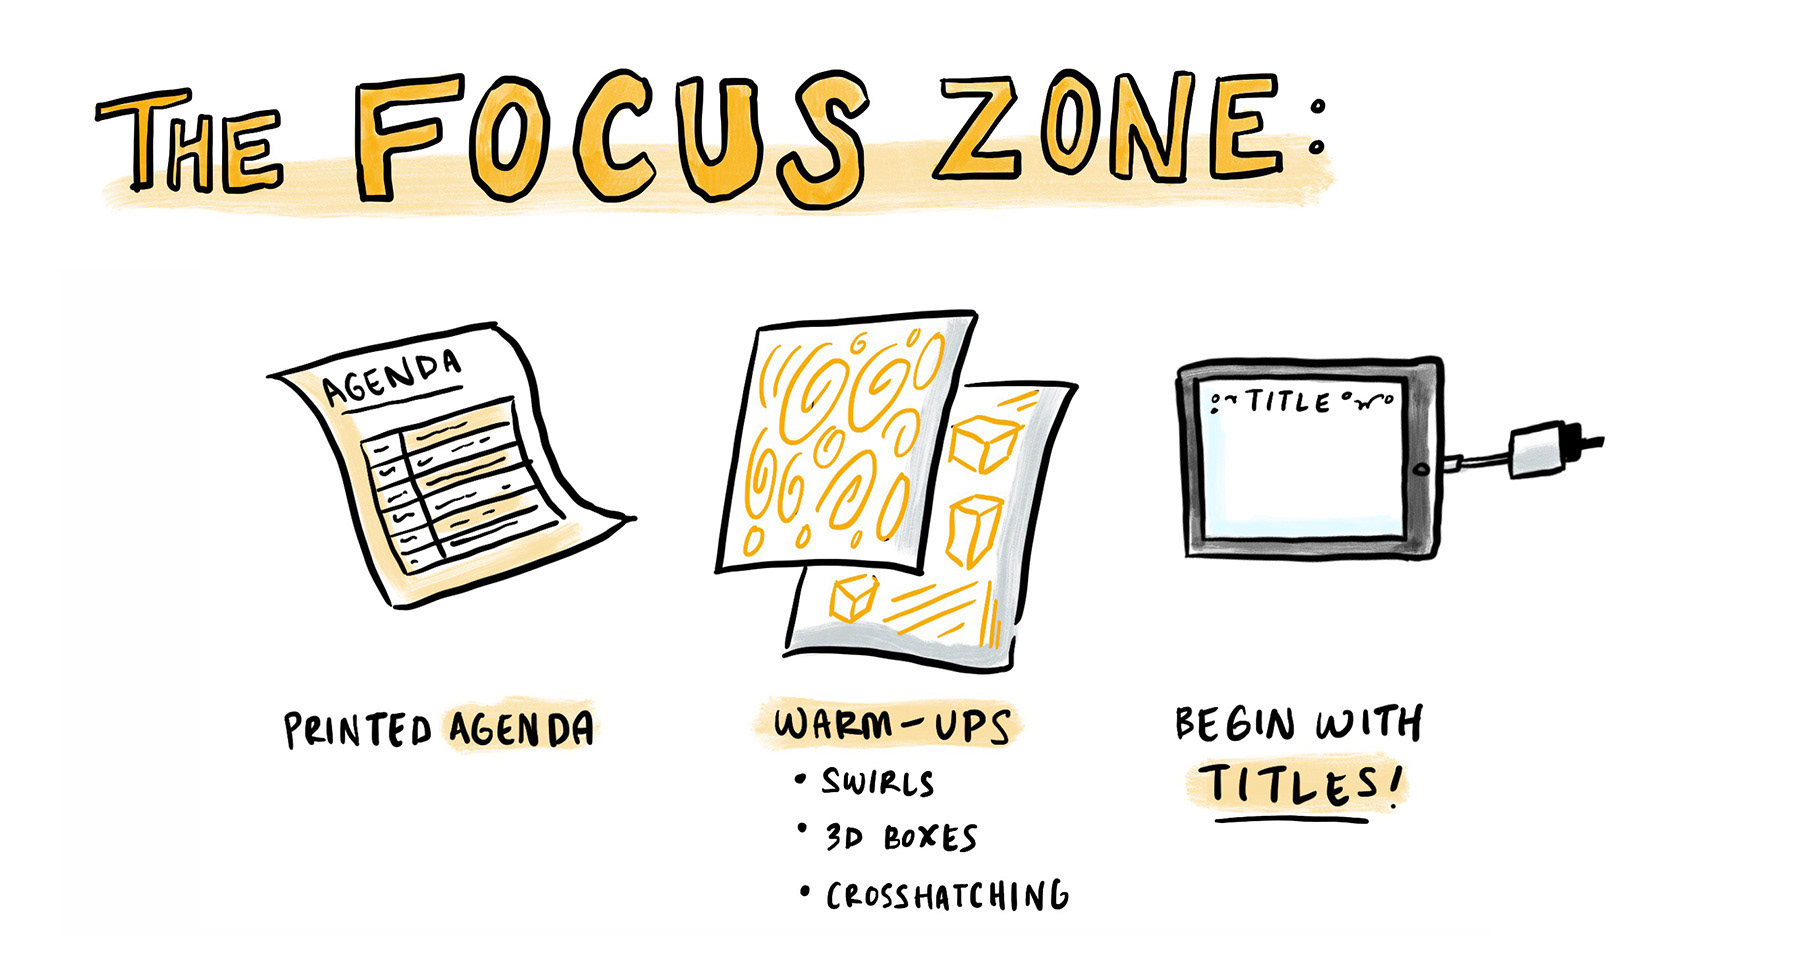 THE FOCUS ZONE:
AGENDA
TITLE
PRINTED AGENDA
WARM-UPS
• SWIRLS
• 3D BOXES
• CROSSHATCHING
BEGIN WITH
TITLES!